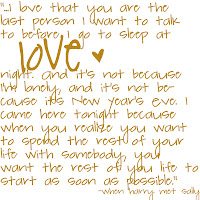 "...I love that you are the
last person I want to talk
to before I go to sleep at
love
night. and it's not because
I'm lonely, and it's not be-
cause it's New Year's eve. I
came here tonight because
when you realize you want
to spend the rest of your
life with somebody, you
want the rest of you life to
start as soon as possible."
-when harry met sally